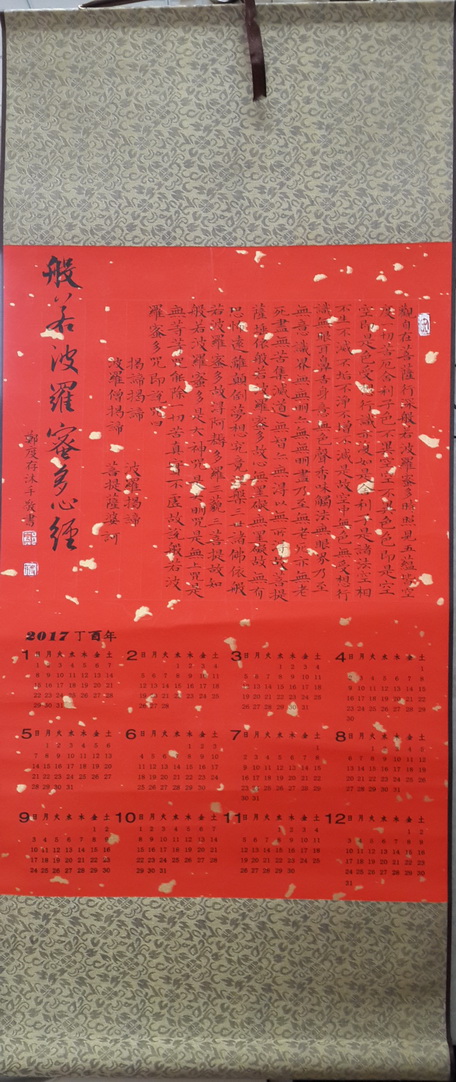 觀自在菩薩行深般若波羅蜜多時照見五蘊皆空
度一切苦厄舍利子色不異空空不異色色即是空
空即是色受想行識亦復如是舍利子是諸法空相
不生不滅不垢不淨不增不減是故空中無色無受想行
識無眼耳鼻舌身意無色聲香味觸法無眼界乃至
無意識界無無明亦無無明盡乃至無老死亦無老
死盡無苦集滅道無智亦無得以無所得故菩提
薩埵依般若波羅蜜多故心無罣礙無罣礙故無有
恐怖遠離顛倒夢想究竟涅槃三世諸佛依般
若波羅蜜多故得阿耨多羅三藐三菩提故知
般若波羅蜜多是大神咒是大明咒是無上咒是
無等等咒能除一切苦真實不虛故說般若波
羅蜜多咒即說咒曰
揭諦揭諦 波羅揭諦
波羅僧揭諦 菩提薩婆訶
般若波羅蜜多心經
鄭度存沐手敬書
2017 丁酉年
1 日 月 火 水 木 金 土
1 2 3 4 5 6 7
8 9 10 11 12 13 14
15 16 17 18 19 20 21
22 23 24 25 26 27 28
29 30 31
2 日 月 火 水 木 金 土
1 2 3 4
5 6 7 8 9 10 11
12 13 14 15 16 17 18
19 20 21 22 23 24 25
26 27 28
3 日 月 火 水 木 金 土
1 2 3 4
5 6 7 8 9 10 11
12 13 14 15 16 17 18
19 20 21 22 23 24 25
26 27 28 29 30 31
4 日 月 火 水 木 金 土
1
2 3 4 5 6 7 8
9 10 11 12 13 14 15
16 17 18 19 20 21 22
23 24 25 26 27 28 29
30
5 日 月 火 水 木 金 土
1 2 3 4 5 6
7 8 9 10 11 12 13
14 15 16 17 18 19 20
21 22 23 24 25 26 27
28 29 30 31
6 日 月 火 水 木 金 土
1 2 3
4 5 6 7 8 9 10
11 12 13 14 15 16 17
18 19 20 21 22 23 24
25 26 27 28 29 30
7 日 月 火 水 木 金 土
1
2 3 4 5 6 7 8
9 10 11 12 13 14 15
16 17 18 19 20 21 22
23 24 25 26 27 28 29
30 31
8 日 月 火 水 木 金 土
1 2 3 4 5
6 7 8 9 10 11 12
13 14 15 16 17 18 19
20 21 22 23 24 25 26
27 28 29 30 31
9 日 月 火 水 木 金 土
1 2
3 4 5 6 7 8 9
10 11 12 13 14 15 16
17 18 19 20 21 22 23
24 25 26 27 28 29 30
10 日 月 火 水 木 金 土
1 2 3 4 5 6 7
8 9 10 11 12 13 14
15 16 17 18 19 20 21
22 23 24 25 26 27 28
29 30 31
11 日 月 火 水 木 金 土
1 2 3 4
5 6 7 8 9 10 11
12 13 14 15 16 17 18
19 20 21 22 23 24 25
26 27 28 29 30
12 日 月 火 水 木 金 土
1 2
3 4 5 6 7 8 9
10 11 12 13 14 15 16
17 18 19 20 21 22 23
24 25 26 27 28 29 30
31